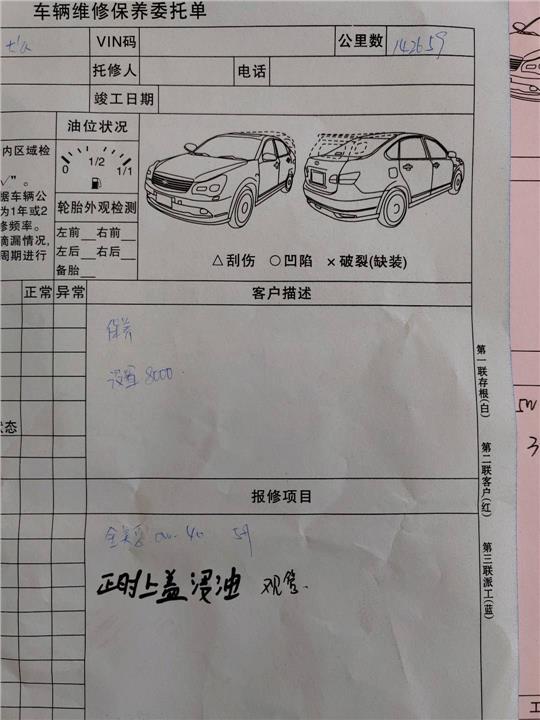 车辆维修保养委托单
VIN码
公里数 142659
托修人
电话
竣工日期
内区域检
√”。
据车辆公
为1年或2
修频率。
滴漏情况,
周期进行
油位状况
0 1/2 1/1
轮胎外观检测
左前__右前__
左后__右后__
备胎__
△刮伤 ○凹陷 ×破裂(缺装)
正常 异常
客户描述
保养
设置8000
状态
报修项目
全美孚 0w-40 5升
正时上盖浸油 观察.
第一联存根(白)
第二联客户(红)
第三联派工(蓝)
5W
3
工